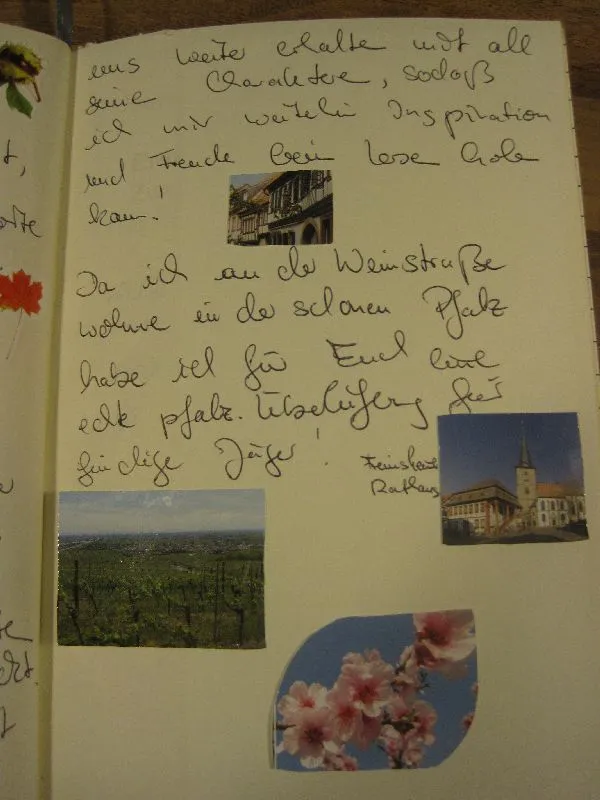 uns weiter erhalte mit all
seine Charaktere, sodaß
ich mir weiterhin Inspiration
und Freude beim lese hole
kann!
Da ich an der Weinstraße
wohne in der schönen Pfalz
habe ich für Euch eine
echt pfälz. Überlieferung für
findige Jäger!
Rathaus